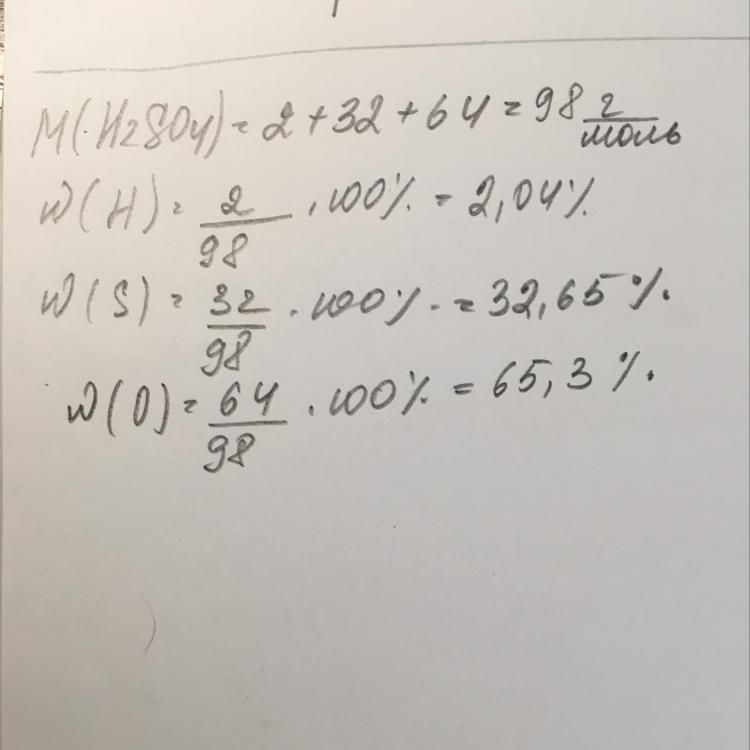 M(H2SO4) = 2 + 32 + 64 = 98 г/моль
W(H) = 2/98 · 100% = 2,04%
W(S) = 32/98 · 100% · = 32,65%.
W(O) = 64/98 · 100% = 65,3%.